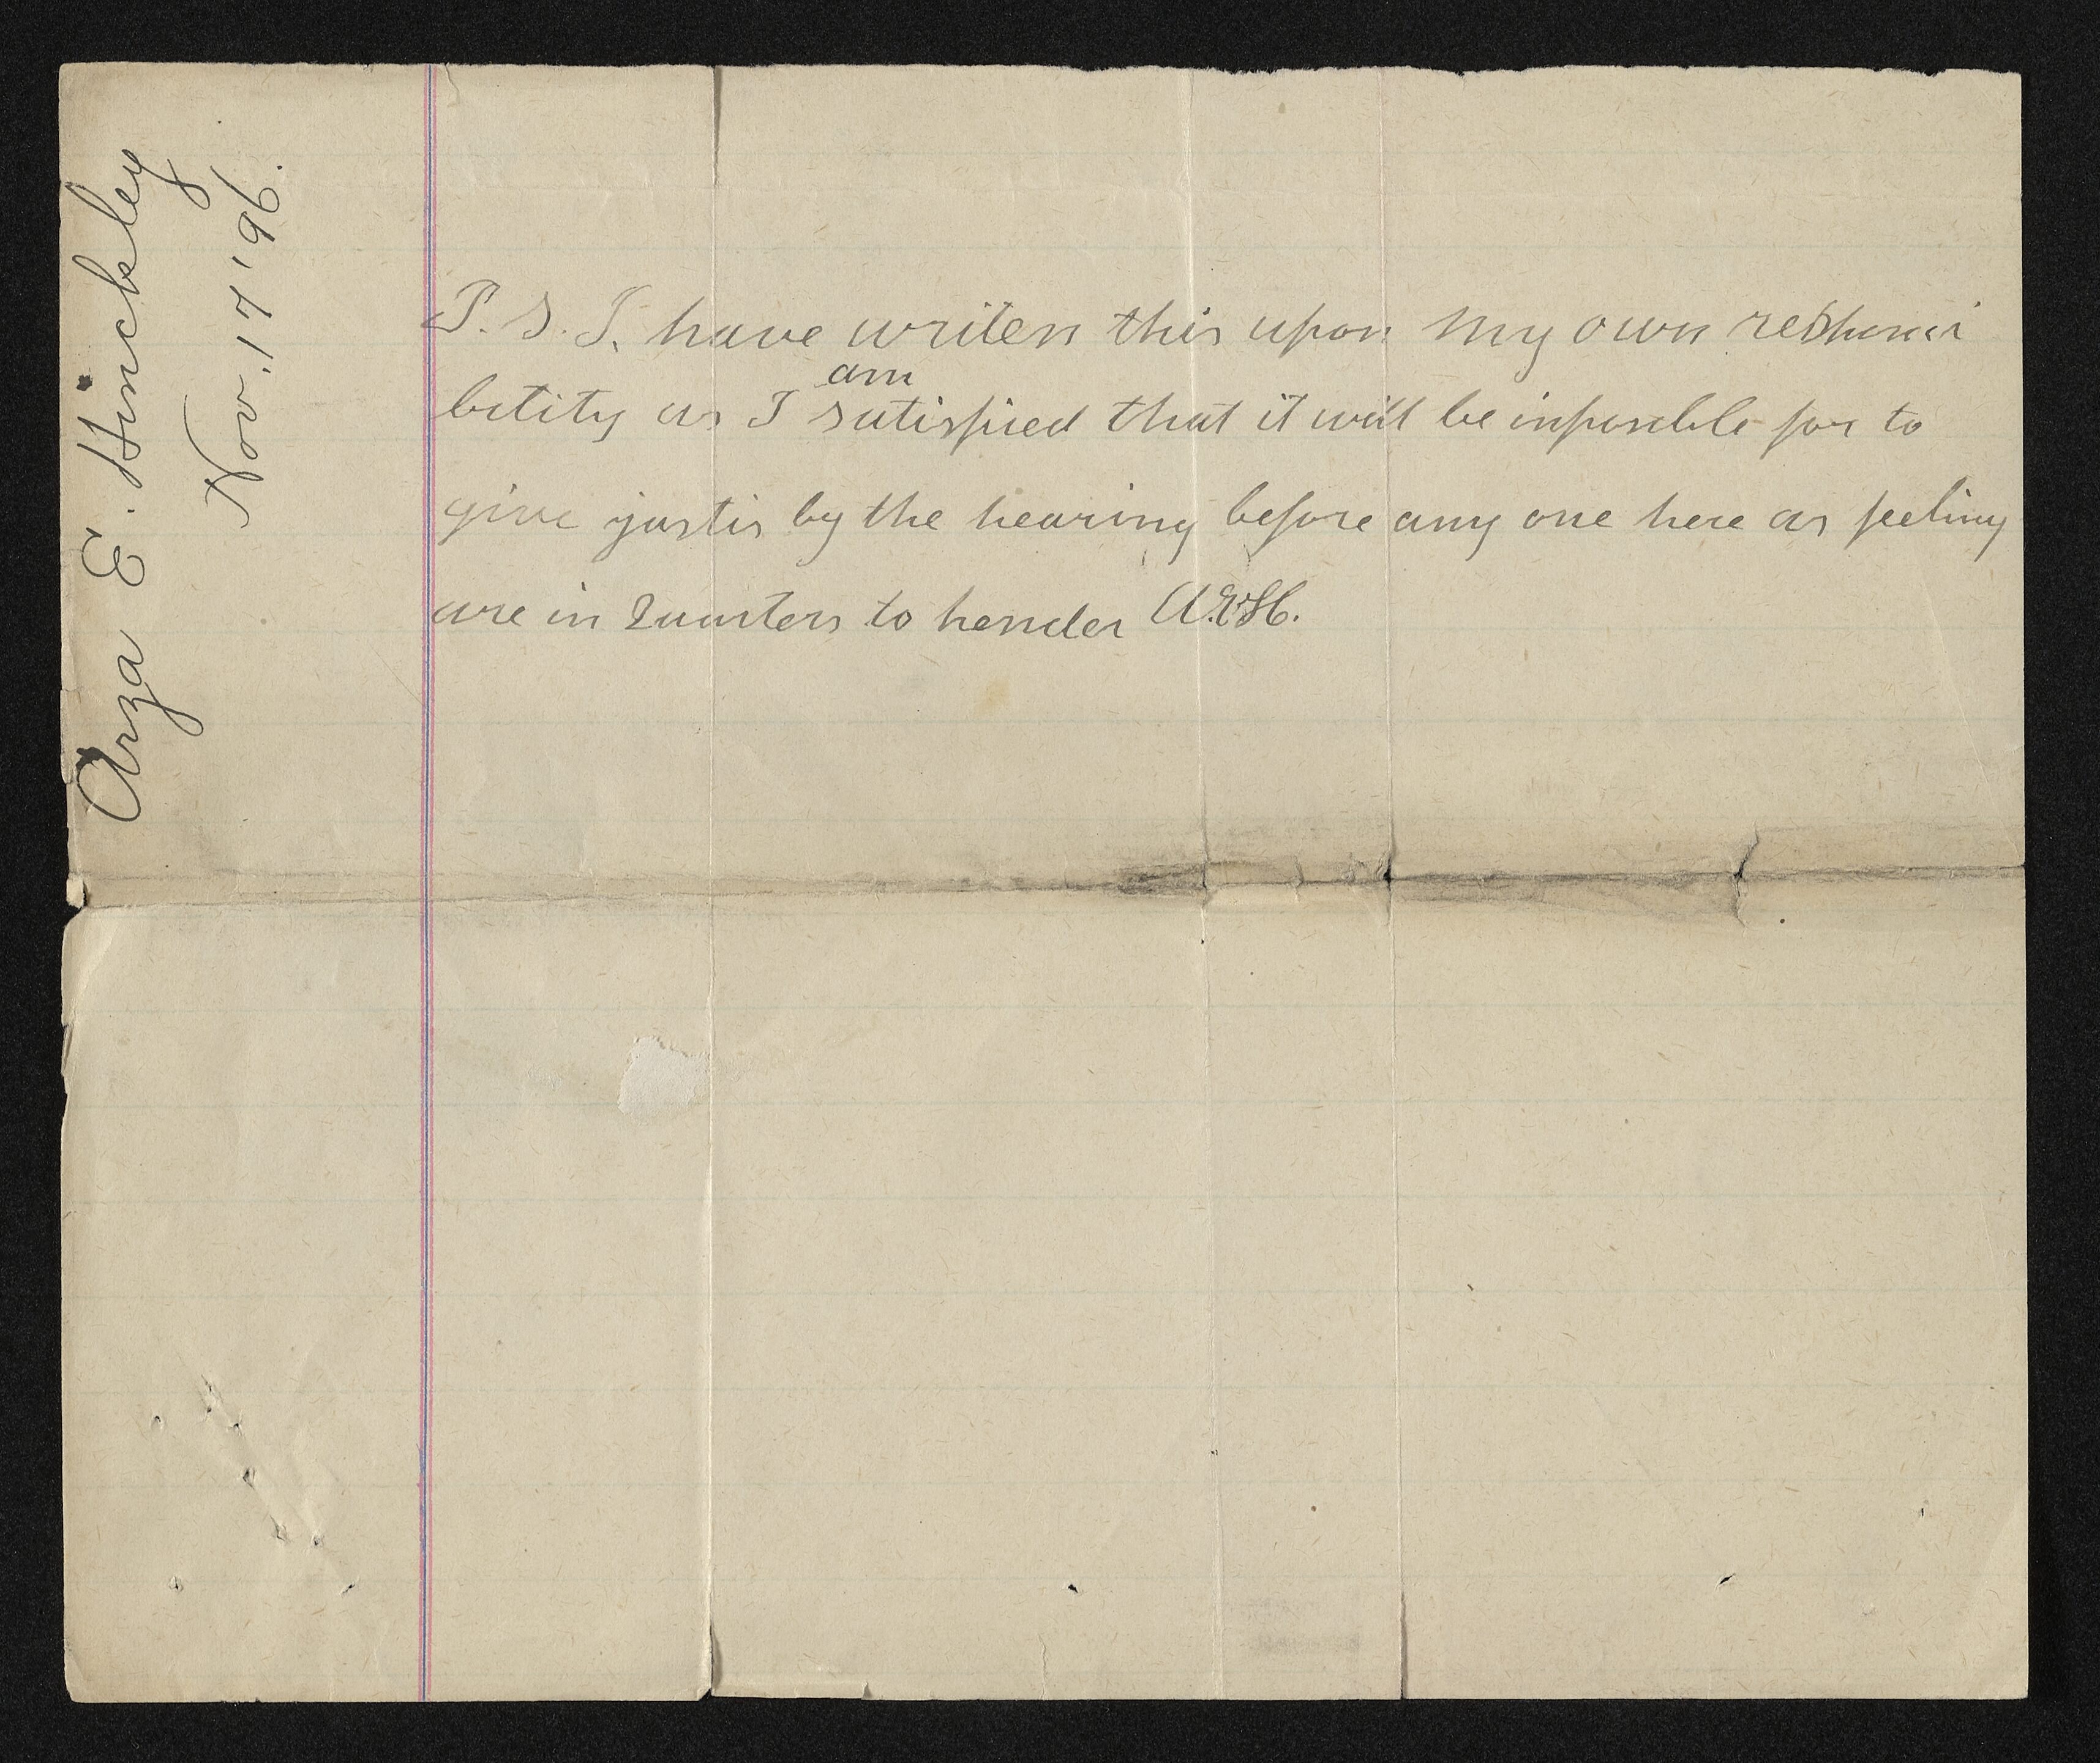 Arza E. Hinckley
Nov. 17 '96.
P. S. I, have writen this upon my own
am
bility as I satisfied that it will be inposible for to
give justis by the hearing before any one here as feeling
are in Quarters to hender A.E.H.